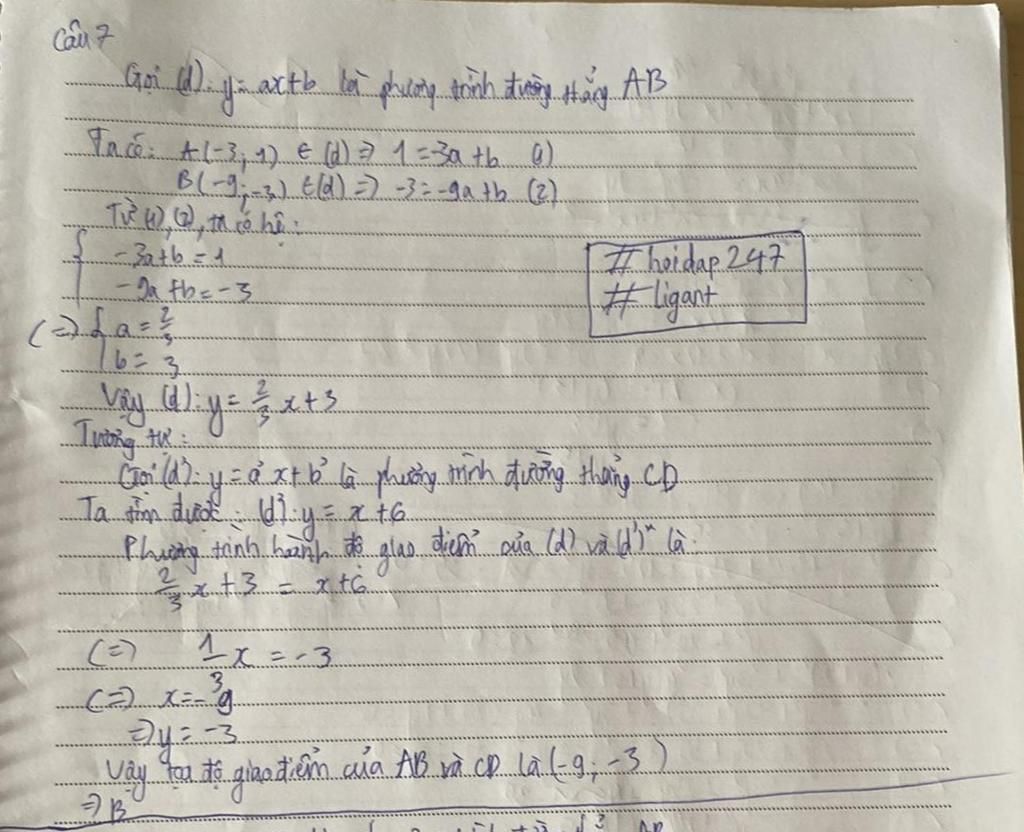 Câu 7
Gọi (d): y = ax+b là phương trình đường thẳng AB
Ta có: A(-3; 1) ∈ (d) => 1 = -3a + b (1)
B(-9; -3) ∈ (d) => -3 = -9a + b (2)
Từ (1), (2), ta có hệ:
{ -3a + b = 1
-9a + b = -3
# hoidap 247
# ligant
(=) { a = 2/3
b = 3
Vậy (d): y = 2/3 x + 3
Tương tự:
Gọi (d'): y = a'x + b' là phương trình đường thẳng CD
Ta tìm được: (d'): y = x + 6
Phương trình hoành độ giao điểm của (d) và (d') là:
2/3 x + 3 = x + 6
(=) 1/3 x = -3
(=) x = -9
=> y = -3
Vậy tọa độ giao điểm của AB và CD là (-9; -3)
=> B